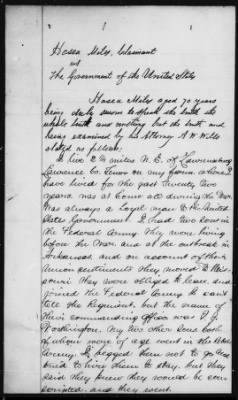 Hosea Miles, Claimant
vs
The Government of the United States
Hosea Miles aged 70 years
being duly sworn to speak the truth the
whole truth and nothing but the truth and
being examined by his Attorney A W Wills
states as follows;
I live 2 1/2 miles N. E. of Lawrenceburg
Lawrence Co Tenn on my farm where I
have lived for the past twenty two
years, was at home all during the War
was always a loyal man to the United
States Government. I had two sons in
the Federal Army they were living
before the War and at the outbreak in
Arkansas, and on account of their
Union sentiments they moved to Mis-
souri they were obliged to leave and
joined the Federal Army I can't
tell the Regiment but the name of
their commanding officer was
Worthington. My two other sons both
of whom were of age went in the Rebel
Army I begged them not to go and
tried to hire them to stay, but they
said they knew they would be con-
scripted and they went.